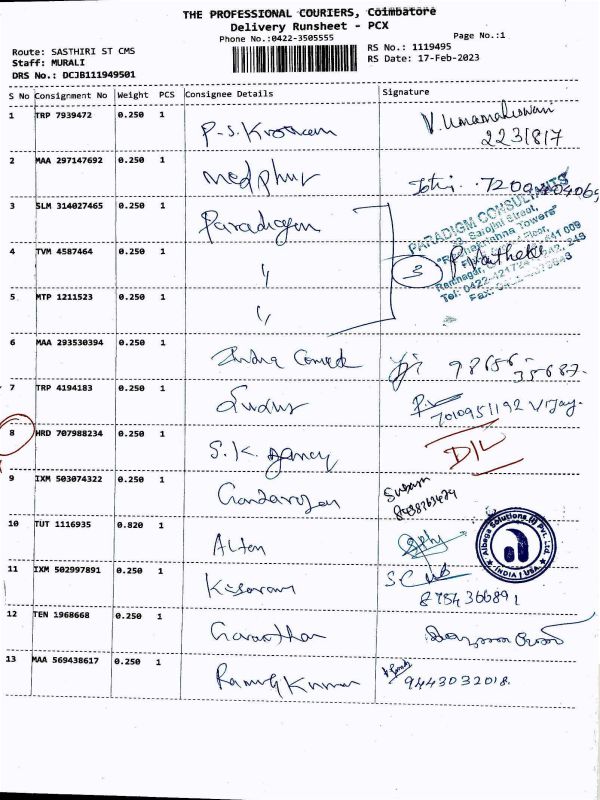 THE PROFESSIONAL COURIERS, Coimbatore
Delivery Runsheet - PCX
Phone No.:0422-3505555
Page No.:1
Route: SASTHIRI ST CMS
Staff: MURALI
DRS No.: DCJB111949501
RS No.: 1119495
RS Date: 17-Feb-2023
S No Consignment No Weight PCS Consignee Details Signature
1 TRP 7939472 0.250 1 V. Umamaheswari
223/8/7
2 MAA 297147692 0.250 1 medphur
3 SLM 314027465 0.250 1 Paradigm
PARADIGM CONSULTANTS
4 TVM 4587464 0.250 1 " 3
5 MTP 1211523 0.250 1 "
6 MAA 293530394 0.250 1 98656-
35687.
7 TRP 4194183 0.250 1 7010951192 Vijay.
8 HRD 707988234 0.250 1 S.K. Agency D/L
9 IXM 503074322 0.250 1
10 TUT 1116935 0.820 1 Alton
Albega Solutions (I) Pvt. Ltd.
INDIA | USA
11 IXM 502997891 0.250 1 Kesavan
8754366891
12 TEN 1968668 0.250 1
13 MAA 569438617 0.250 1 Ramesh Kumar 9443032018.